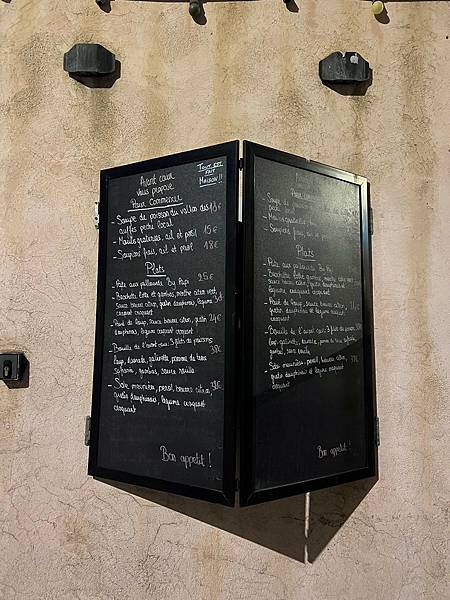 Avant cour
Vous propose
Pour Commencer
TOUT EST
FAIT
MAISON !!
- Soupe de poisson du vallon des 13€
auffes peché local
- Moules gratinées, ail et persil 15€
- Soupions frais, ail et persil 18€
Plats
- Pates aux palourdes By Papi 25€
- Brochette Lotte et gambas, menthe citron vert,
sauce beurre citron, gratin dauphinois, légumes
croquant croquant
- Pavé de loup, sauce beurre citron, gratin 24€
dauphinois, légumes croquant croquant
- Bouille de l'avant cour 3 filets de poissons
loup, daurade, galinette, pomme de terre 38€
safranée, gambas, sauce rouille
- Sole meunière, persil, beurre citron, 39€
gratin dauphinois, légumes croquant
croquant
Bon appetit !
Pour Commencer
- Soupe de
peché
- Moules gratinées
- Soupions frais, ail et
Plats
- Pates aux palourdes By Papi
- Brochette Lotte gambas, menthe citron vert
sauce beurre citron, gratin dauphinois et
légumes croquant croquant
- Pavé de loup, sauce beurre citron,
gratin dauphinois et légumes croquant
croquant
- Bouille de l'avant cour 3 filets de poisson
loup, galinette, daurade, pomme de terre safranée
gambas, sauce rouille
- Sole meunière, persil, beurre citron,
gratin dauphinois et légumes croquant
croquant
Bon appetit !